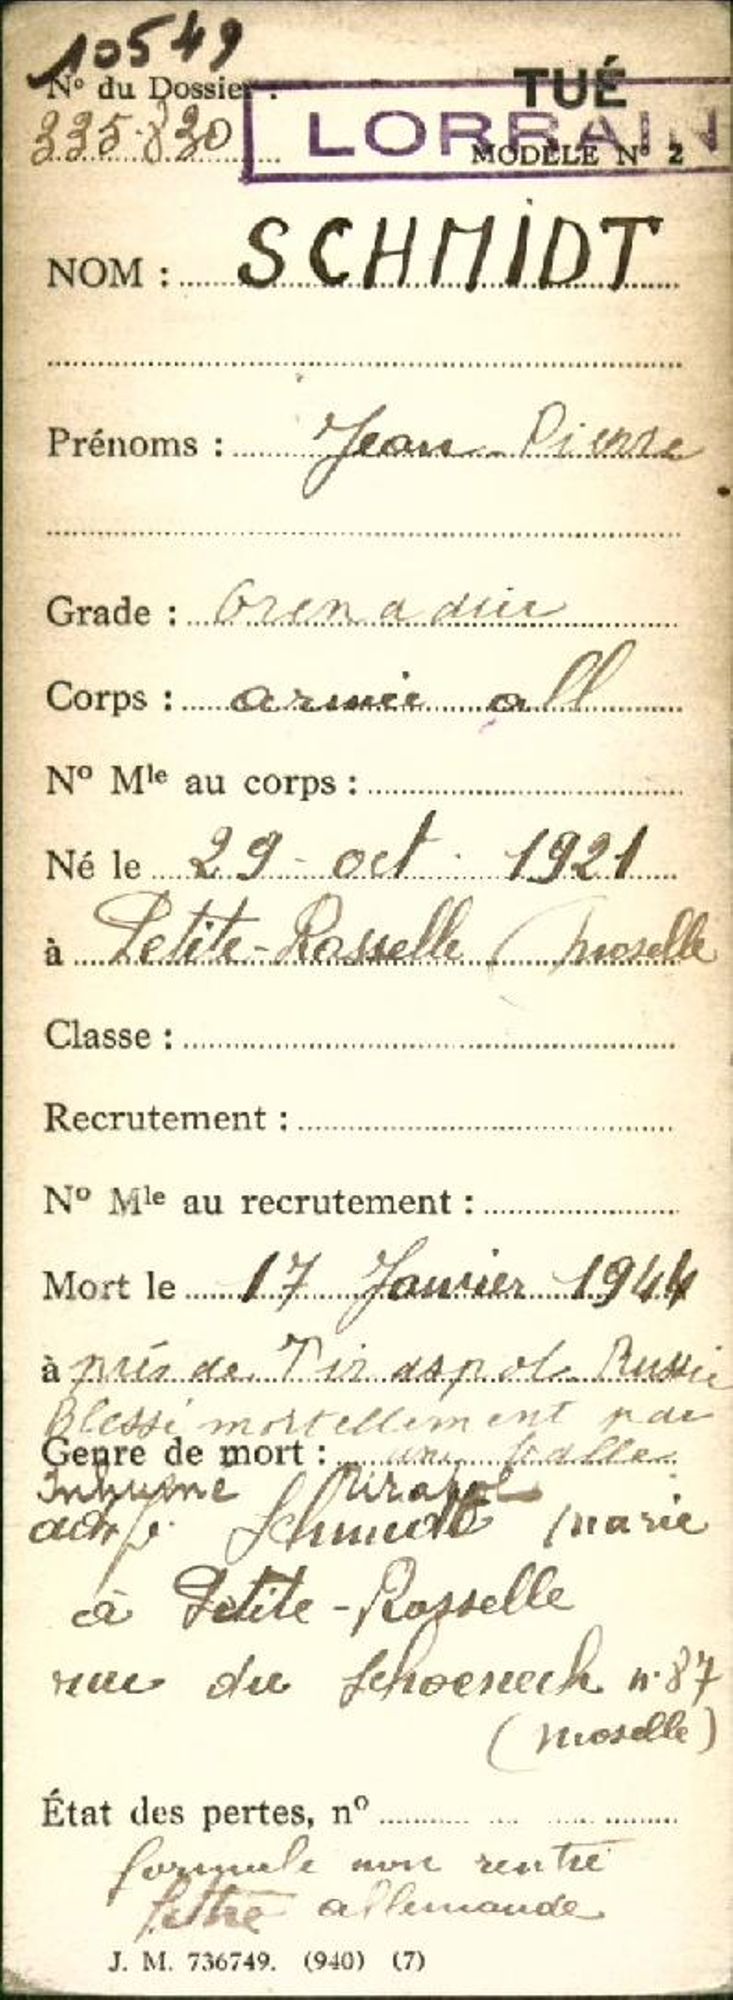 10549
N° du Dossier :
335.830
TUÉ
LORRAIN
MODÈLE N° 2
NOM : SCHMIDT
Prénoms : Jean-Pierre
Grade : Grenadier
Corps : armée all
N° Mle au corps :
Né le 29 - oct - 1921
à Petite-Rosselle (Moselle
Classe :
Recrutement :
N° Mle au recrutement :
Mort le 17 Janvier 1944
à près de Tiraspol Russie
Blessé mortellement par
Genre de mort : une balle
Inhumé
Schmidt Marie
à Petite-Rosselle
rue du Schoeneck n° 87
(Moselle)
État des pertes, n°
formule non rentré
lettre allemande
J. M. 736749. (940) (7)